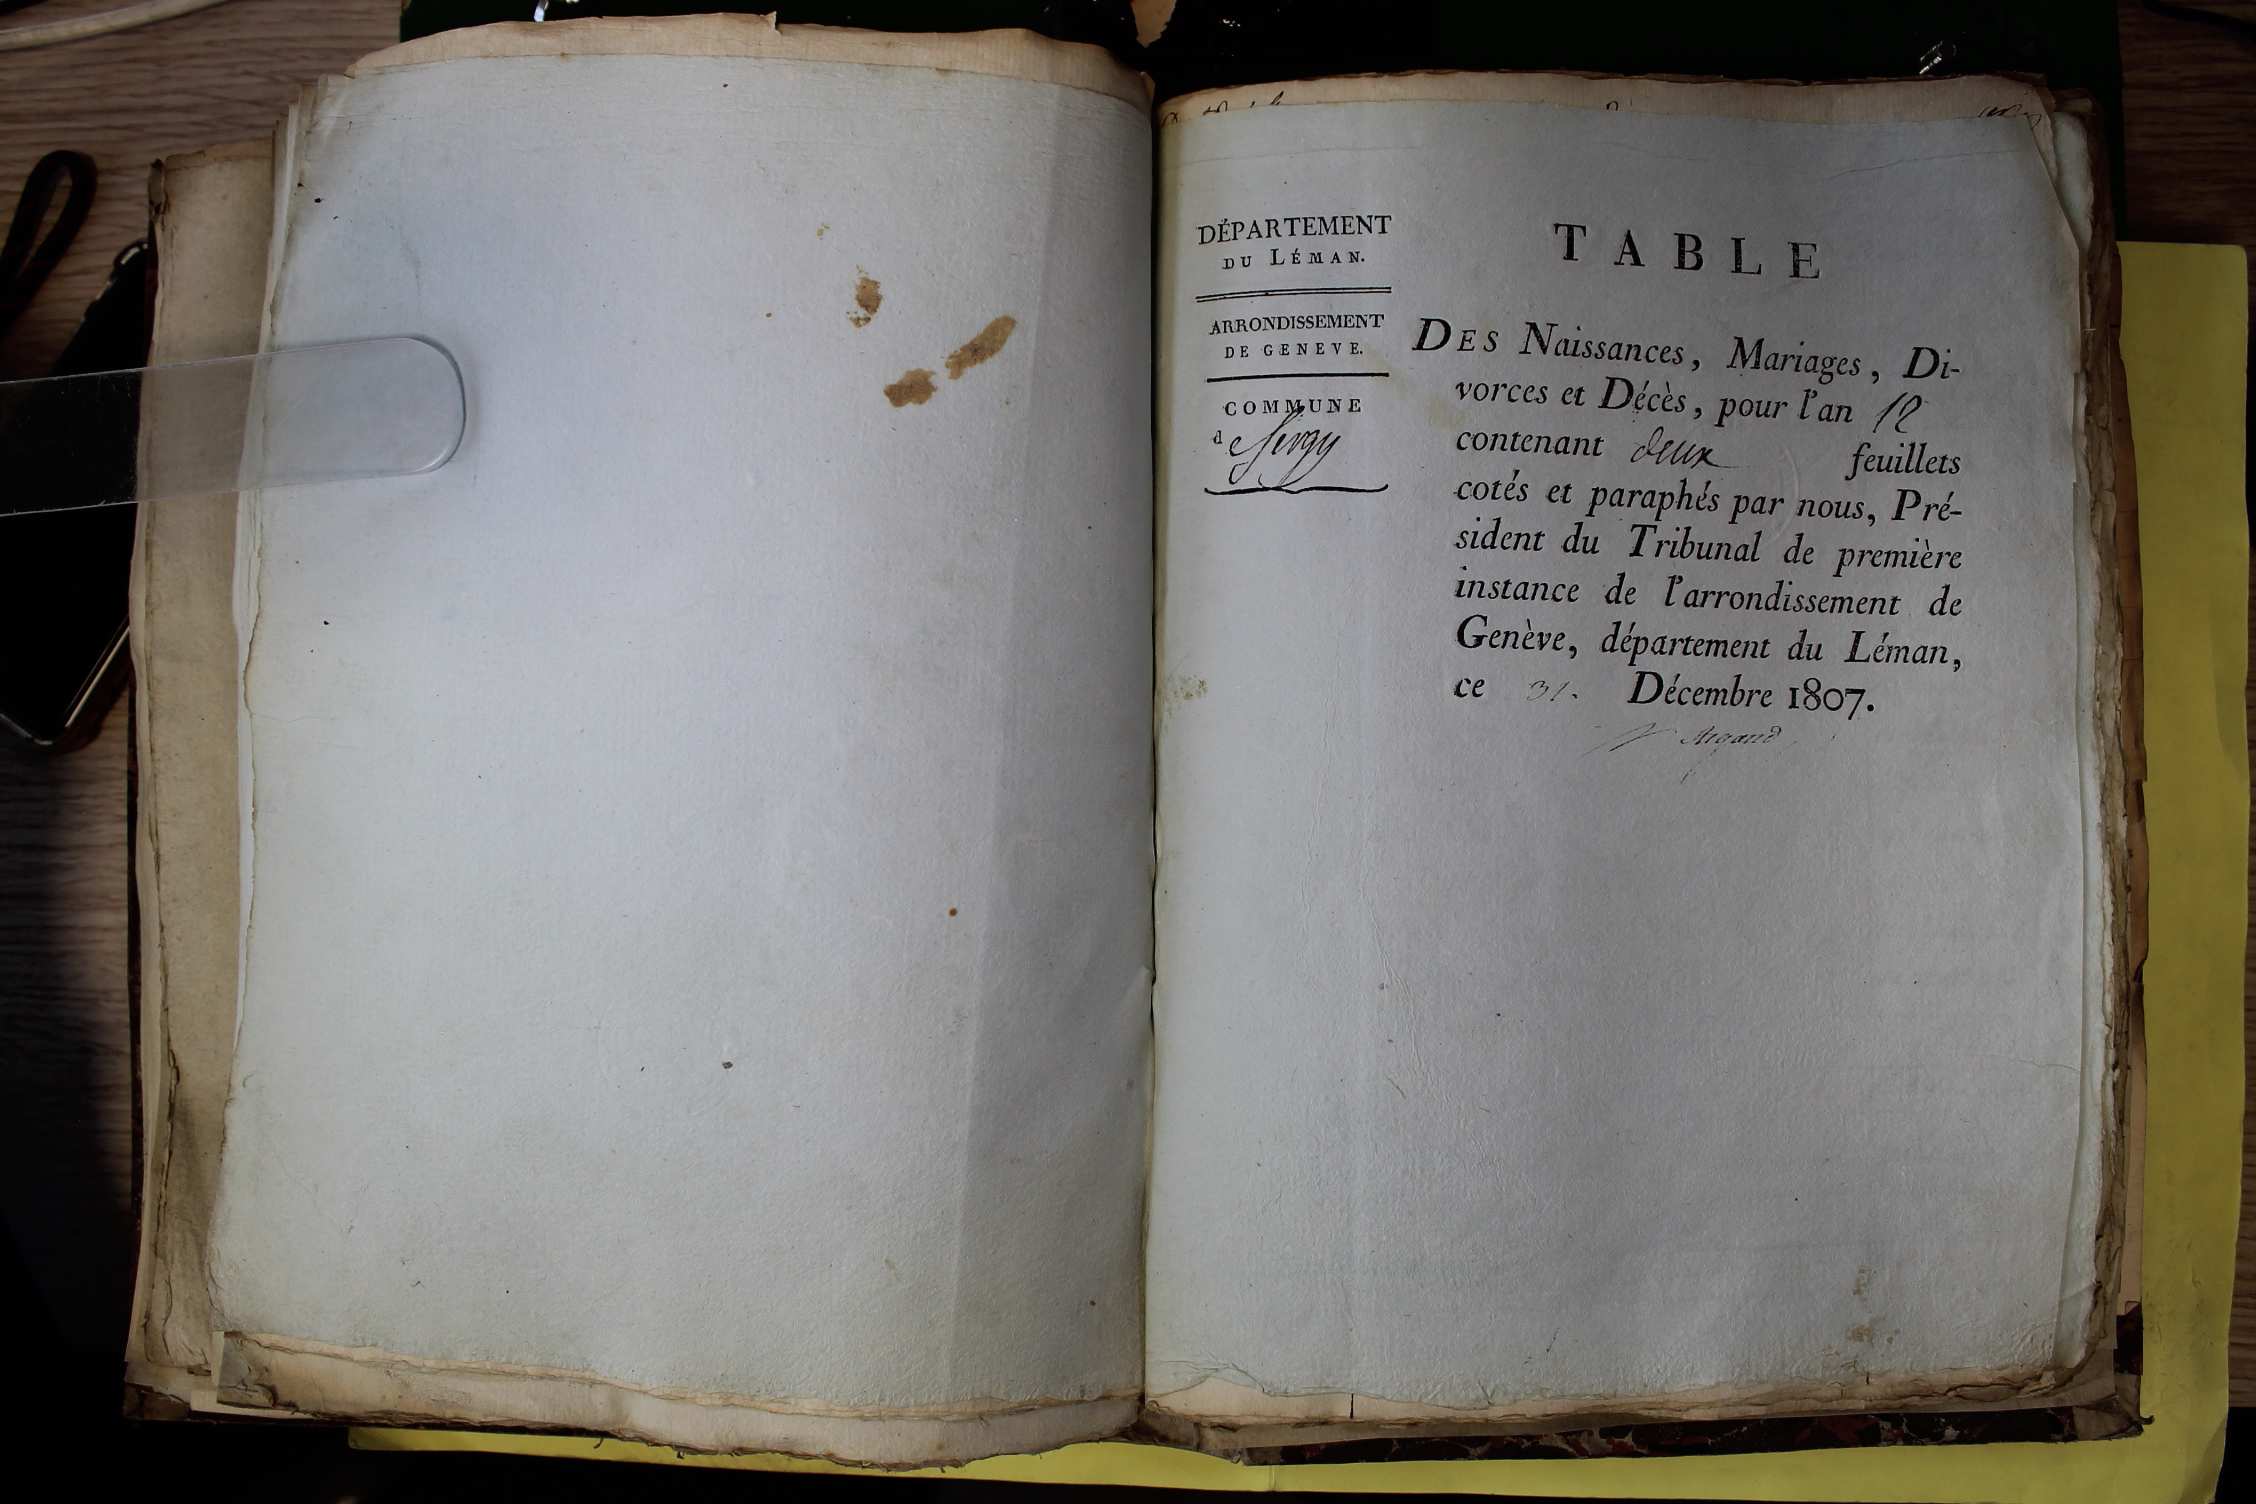 DÉPARTEMENT
DU LÉMAN.
ARRONDISSEMENT
DE GENEVE.
COMMUNE
de Sergy
TABLE
DES Naissances, Mariages, Di-
vorces et Décès, pour l'an 12
contenant deux feuillets
cotés et paraphés par nous, Pré-
sident du Tribunal de première
instance de l'arrondissement de
Genève, département du Léman,
ce 31. Décembre 1807.
Argand